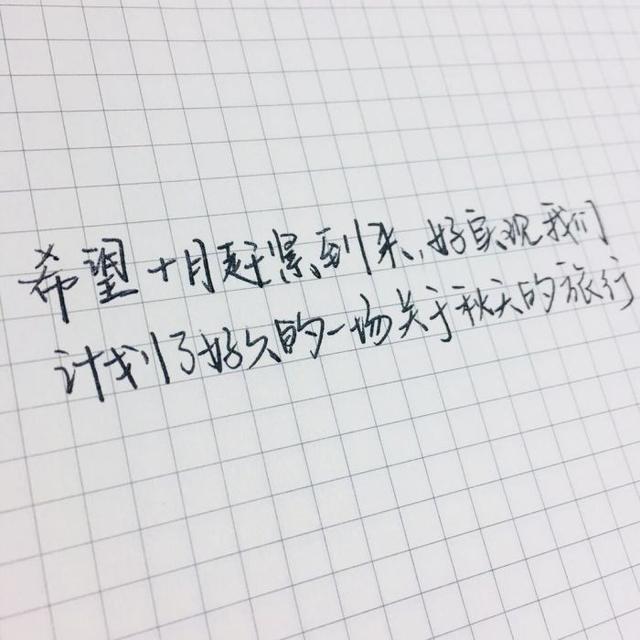 希望十月赶紧到来,好实现我们
计划了好久的一场关于秋天的旅行